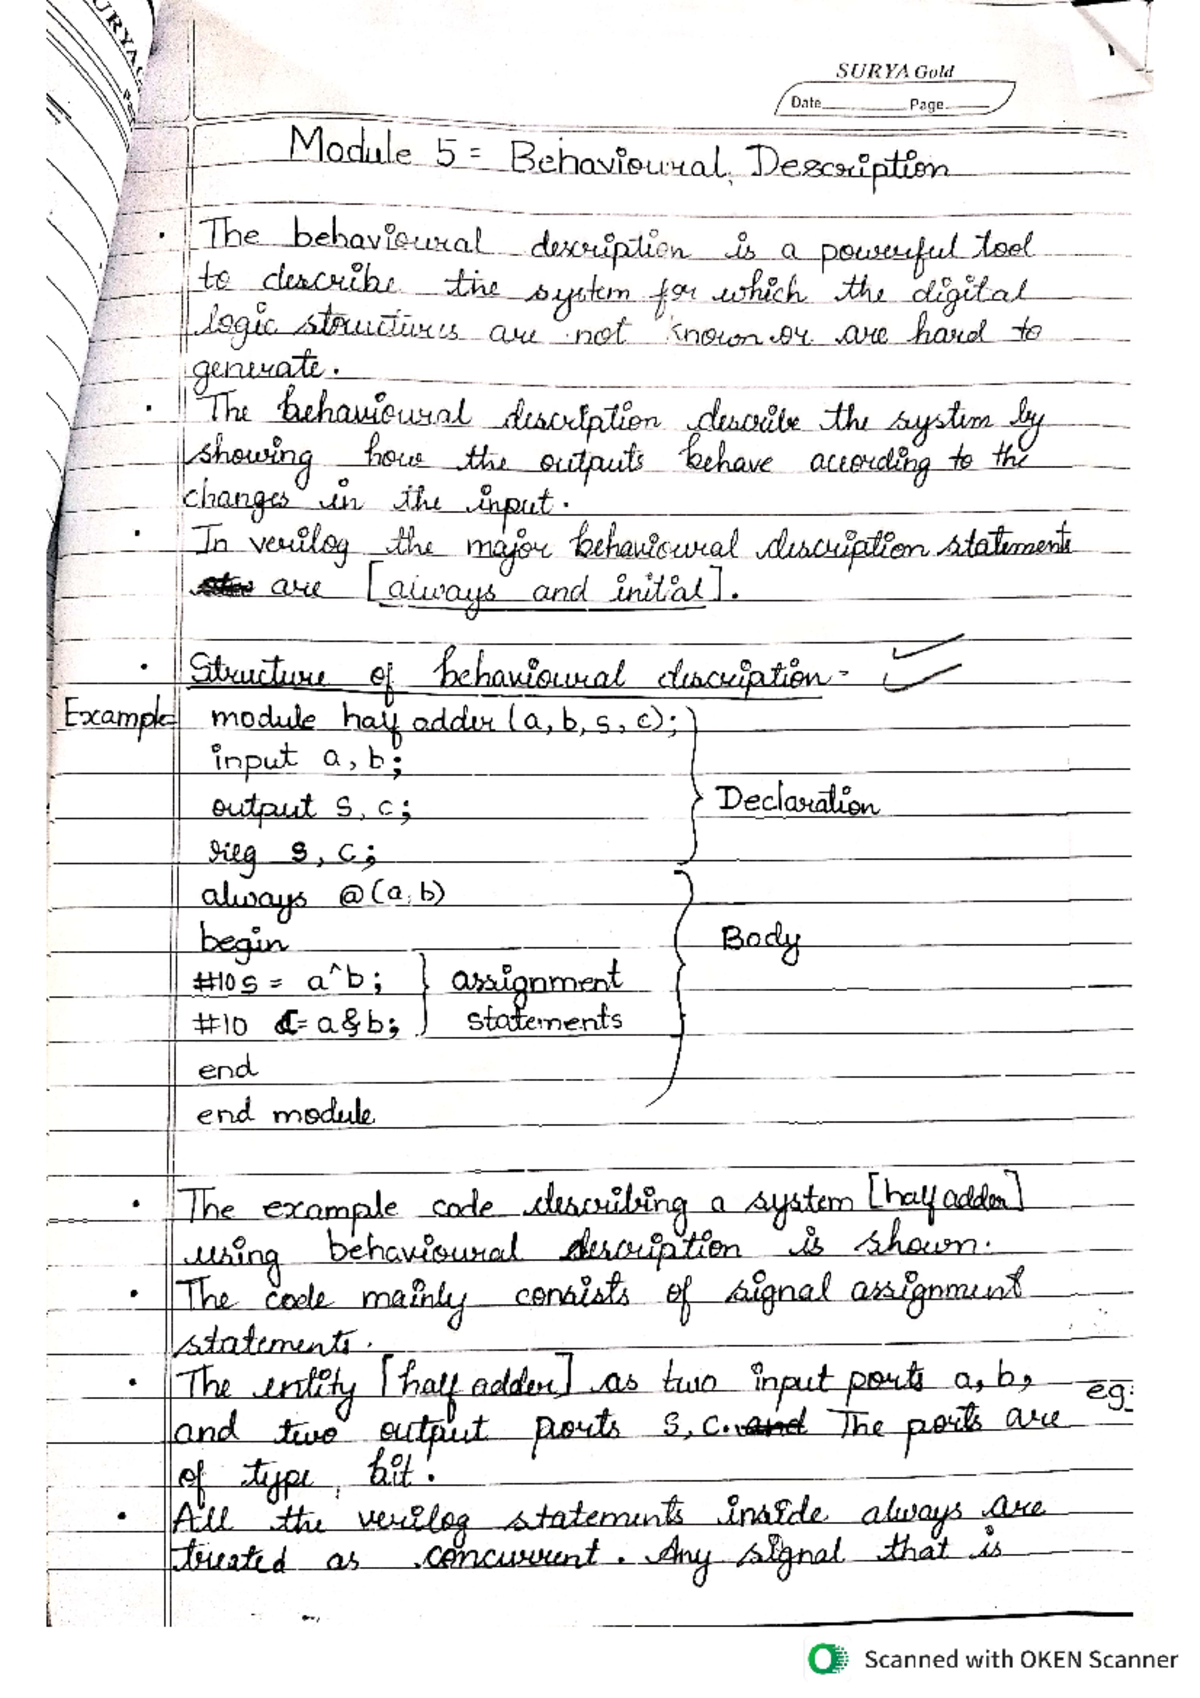 SURYA
SURYA Gold
Date Page
Module 5 = Behavioural Description
• The behavioural description is a powerful tool
to describe the system for which the digital
logic structures are not known or are hard to
generate.
• The behavioural description describe the system by
showing how the outputs behave according to the
changes in the input.
• In verilog the major behavioural description statements
are [always and initial].
• Structure of behavioural description -
Example= module half adder (a, b, s, c);
input a, b;
output s, c;
Declaration
reg s, c;
always @(a, b)
begin
Body
#10 s = a^b; assignment
#10 c = a&b; statements
end
end module
• The example code describing a system [half adder]
using behavioural description is shown.
• The code mainly consists of signal assignment
statements.
• The entity [half adder] as two input ports a, b, eg:
and two output ports s, c. and The ports are
of type bit.
• All the verilog statements inside always are
treated as concurrent. Any signal that is
Scanned with OKEN Scanner